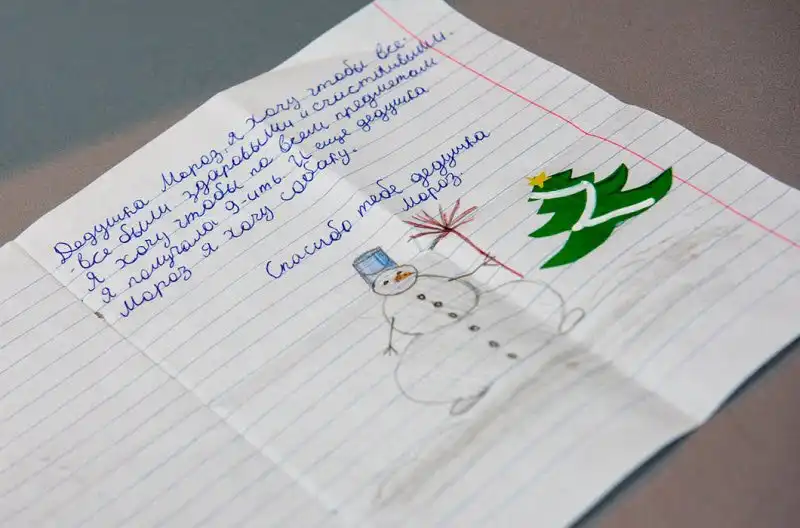 Дедушка Мороз, я хочу чтобы все-
все были здаровыми и счастливыми.
Я хочу чтобы по всем предметам
я получала 9-ить. И еще дедушка
Мороз я хочу собаку.
Спасибо тебе дедушка
мороз